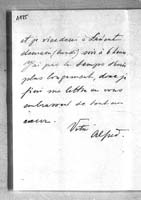 et je viendrai à
demain (lundi) soir à 6 heures
J'ai pas le temps d'écrire
plus longuement, donc je
fini ma lettre en vous
embrassant de tout mon
cœur.
Votre Alfred.